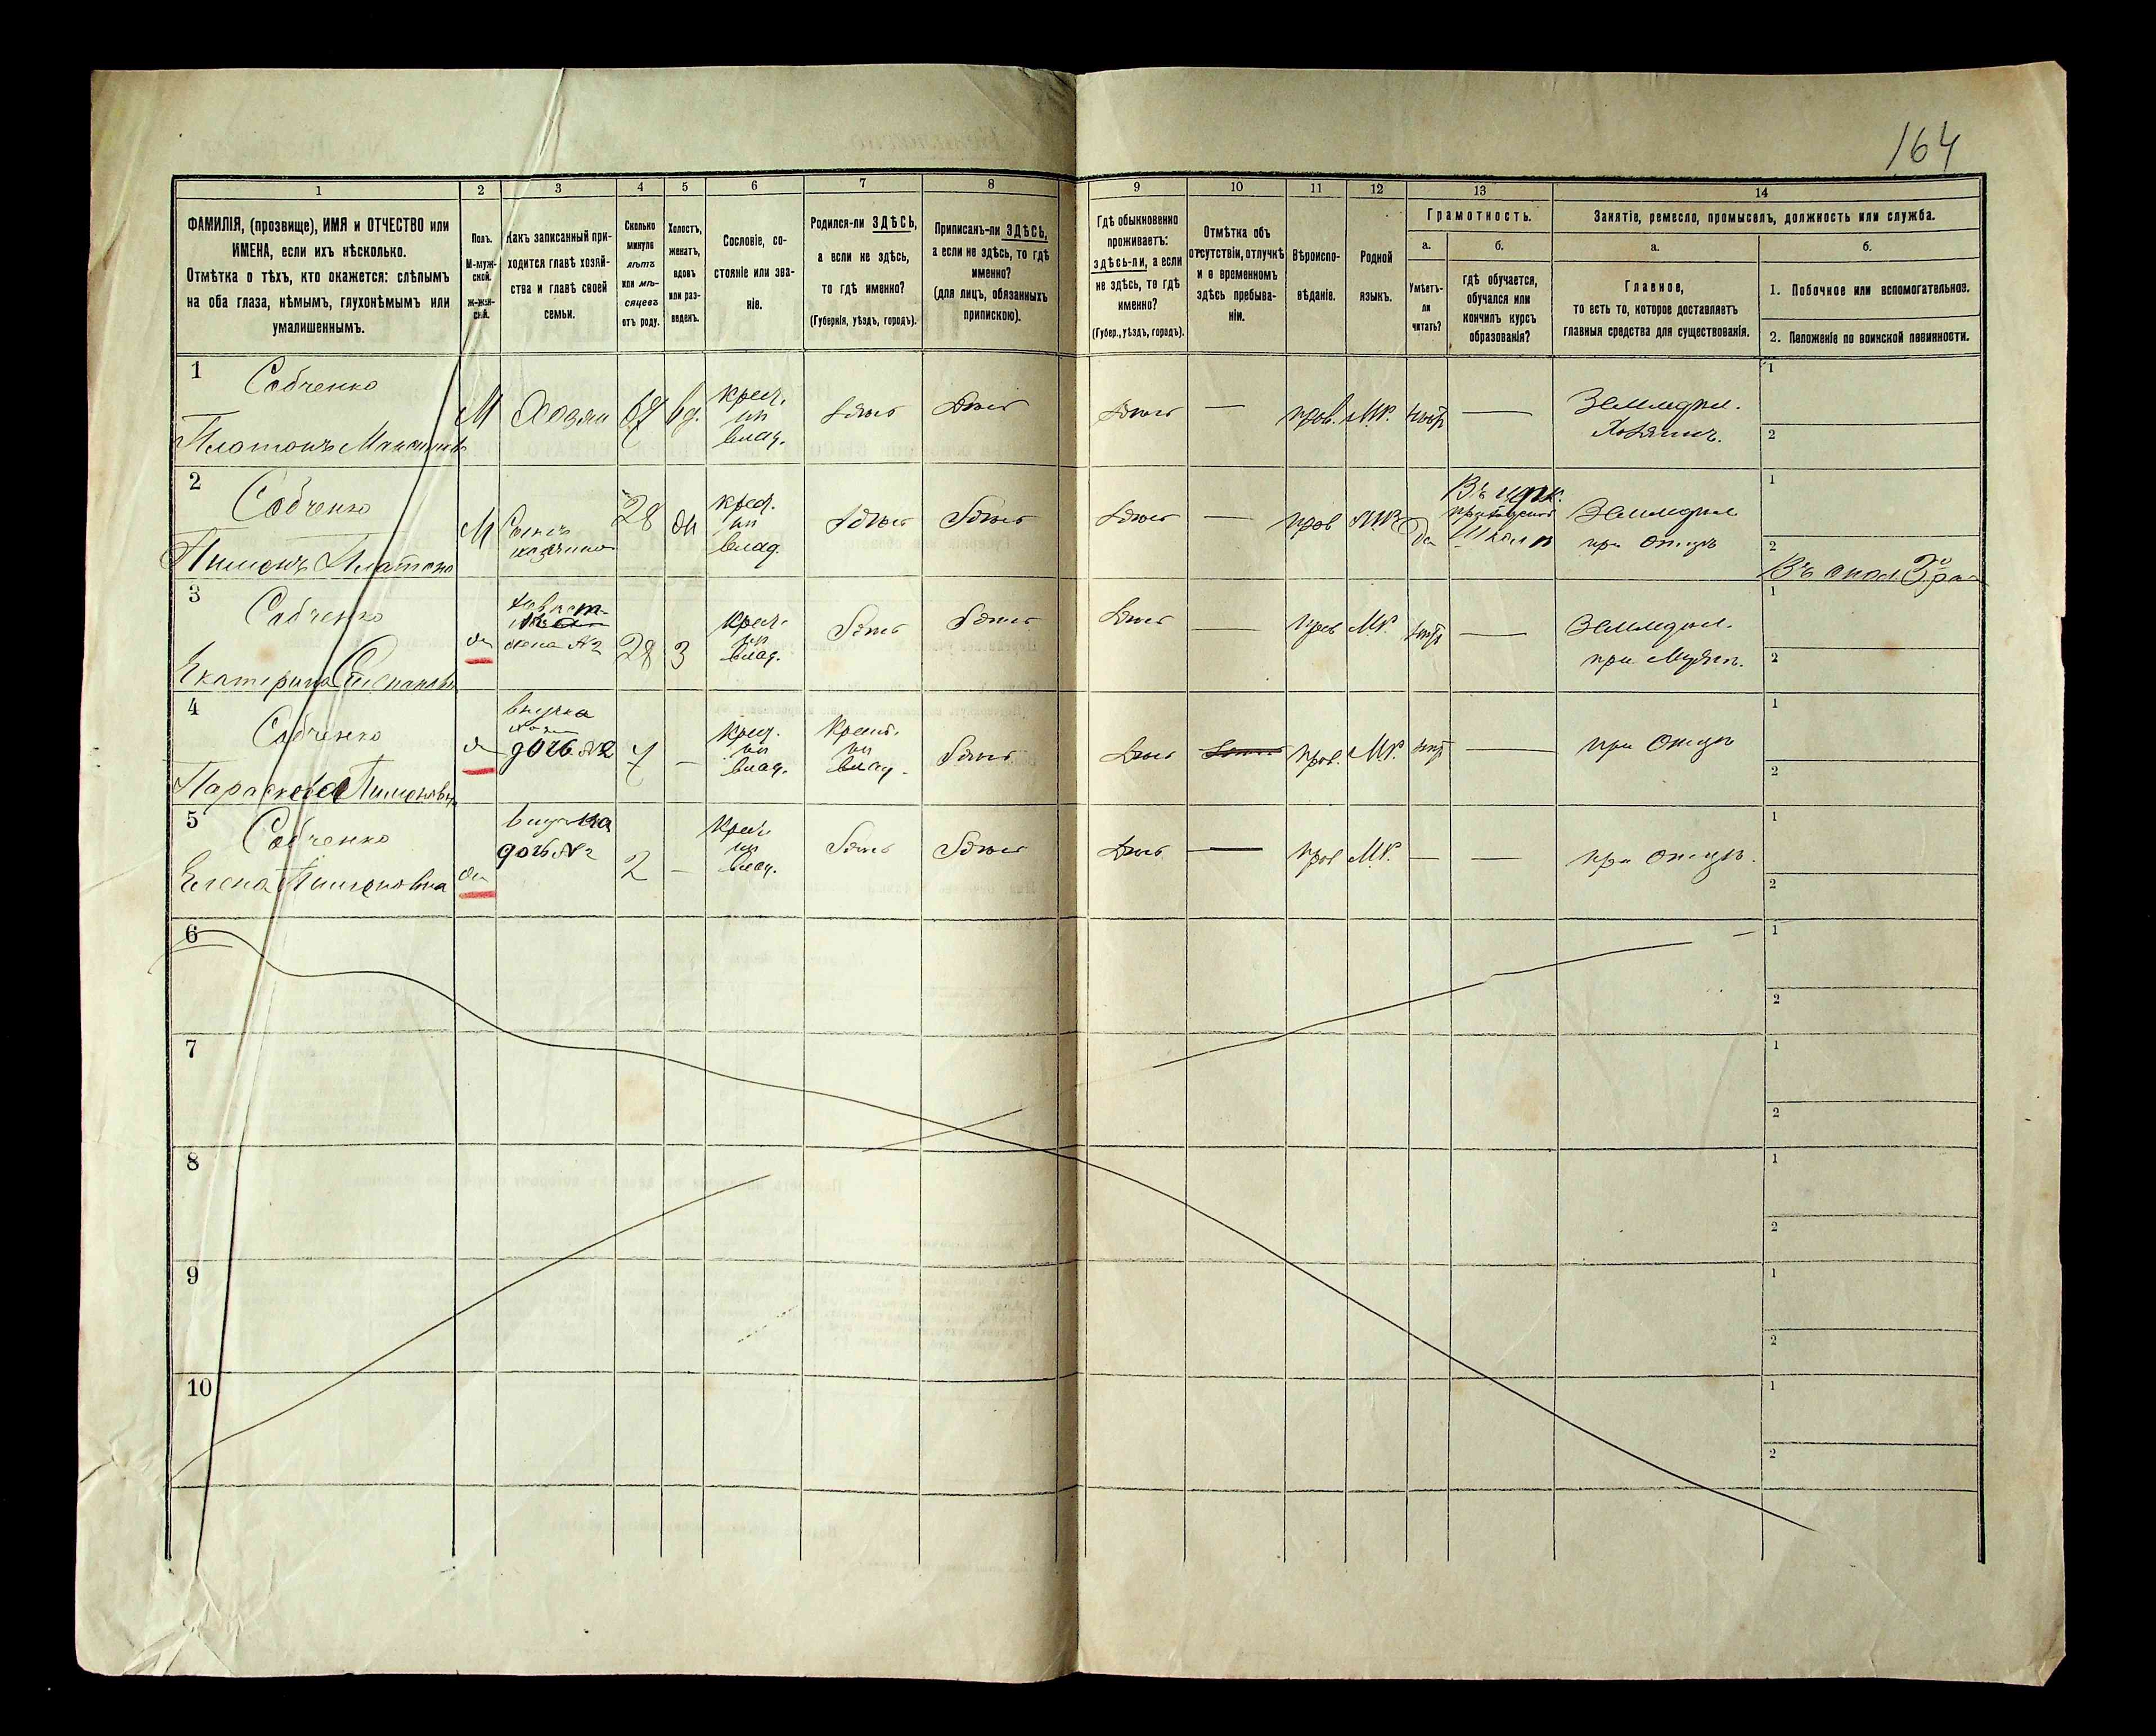 164
1 2 3 4 5 6 7 8 9 10 11 12 13 14
ФАМИЛІЯ, (прозвище), ИМЯ и ОТЧЕСТВО или
ИМЕНА, если ихъ нѣсколько.
Отмѣтка о тѣхъ, кто окажется: слѣпымъ
на оба глаза, нѣмымъ, глухонѣмымъ или
умалишеннымъ.
Полъ.
М-муж-
ской.
ж-жен-
скій.
Какъ записанный при-
ходится главѣ хозяй-
ства и главѣ своей
семьи.
Сколько
минуло
лѣтъ
или мѣ-
сяцевъ
отъ роду.
Холостъ,
женатъ,
вдовъ
или раз-
веденъ.
Сословіе, со-
стояніе или зва-
ніе.
Родился-ли ЗДѢСЬ,
а если не здѣсь,
то гдѣ именно?
(Губернія, уѣздъ, городъ).
Приписанъ-ли ЗДѢСЬ,
а если не здѣсь, то гдѣ
именно?
(для лицъ, обязанныхъ
припискою).
Гдѣ обыкновенно
проживаетъ:
здѣсь-ли, а если
не здѣсь, то гдѣ
именно?
(Губер., уѣздъ, городъ).
Отмѣтка объ
отсутствіи, отлучкѣ
и о временномъ
здѣсь пребыва-
ніи.
Вѣроиспо-
вѣданіе.
Родной
языкъ.
Грамотность.
а.
Умѣетъ-
ли
читать?
б.
гдѣ обучается,
обучался или
кончилъ курсъ
образованія?
Занятіе, ремесло, промыселъ, должность или служба.
а.
Главное,
то есть то, которое доставляетъ
главныя средства для существованія.
б.
1. Побочное или вспомогательное.
2. Положеніе по воинской повинности.
1
Собченко
Платонъ
М
67
вд.
крест.
вл ад.
Здѣсь
Здѣсь
Здѣсь
—
прав.
М.Р.
—
Землед.
Хозяинъ.
1
2
2
Собченко
Пименъ Платоно
М
Сынъ
28
крест.
влад.
Здѣсь
Здѣсь
Здѣсь
прав
да
Въ церк.
приходской
Школѣ
Землед
при Отцѣ
1
2
3
Собченко
Екатерина
невѣст.
жена №2
28
З
крест.
влад.
Здѣсь
Здѣсь
Здѣсь
—
прав
М.Р.
—
Землед.
при Мужѣ.
1
2
4
Собченко
Параскева Пименовна
внучка
дочь №2
—
крест.
влад.
Здѣсь
Здѣсь
прав.
М.Р.
—
при Отцѣ
1
2
5
Собченко
Елена Пименовна
внучка
дочь №2
2
—
крест.
влад.
Здѣсь
Здѣсь
Здѣсь
—
прав
М.Р.
—
—
при Отцѣ.
1
2
6
1
2
7
1
2
8
1
2
9
1
2
10
1
2